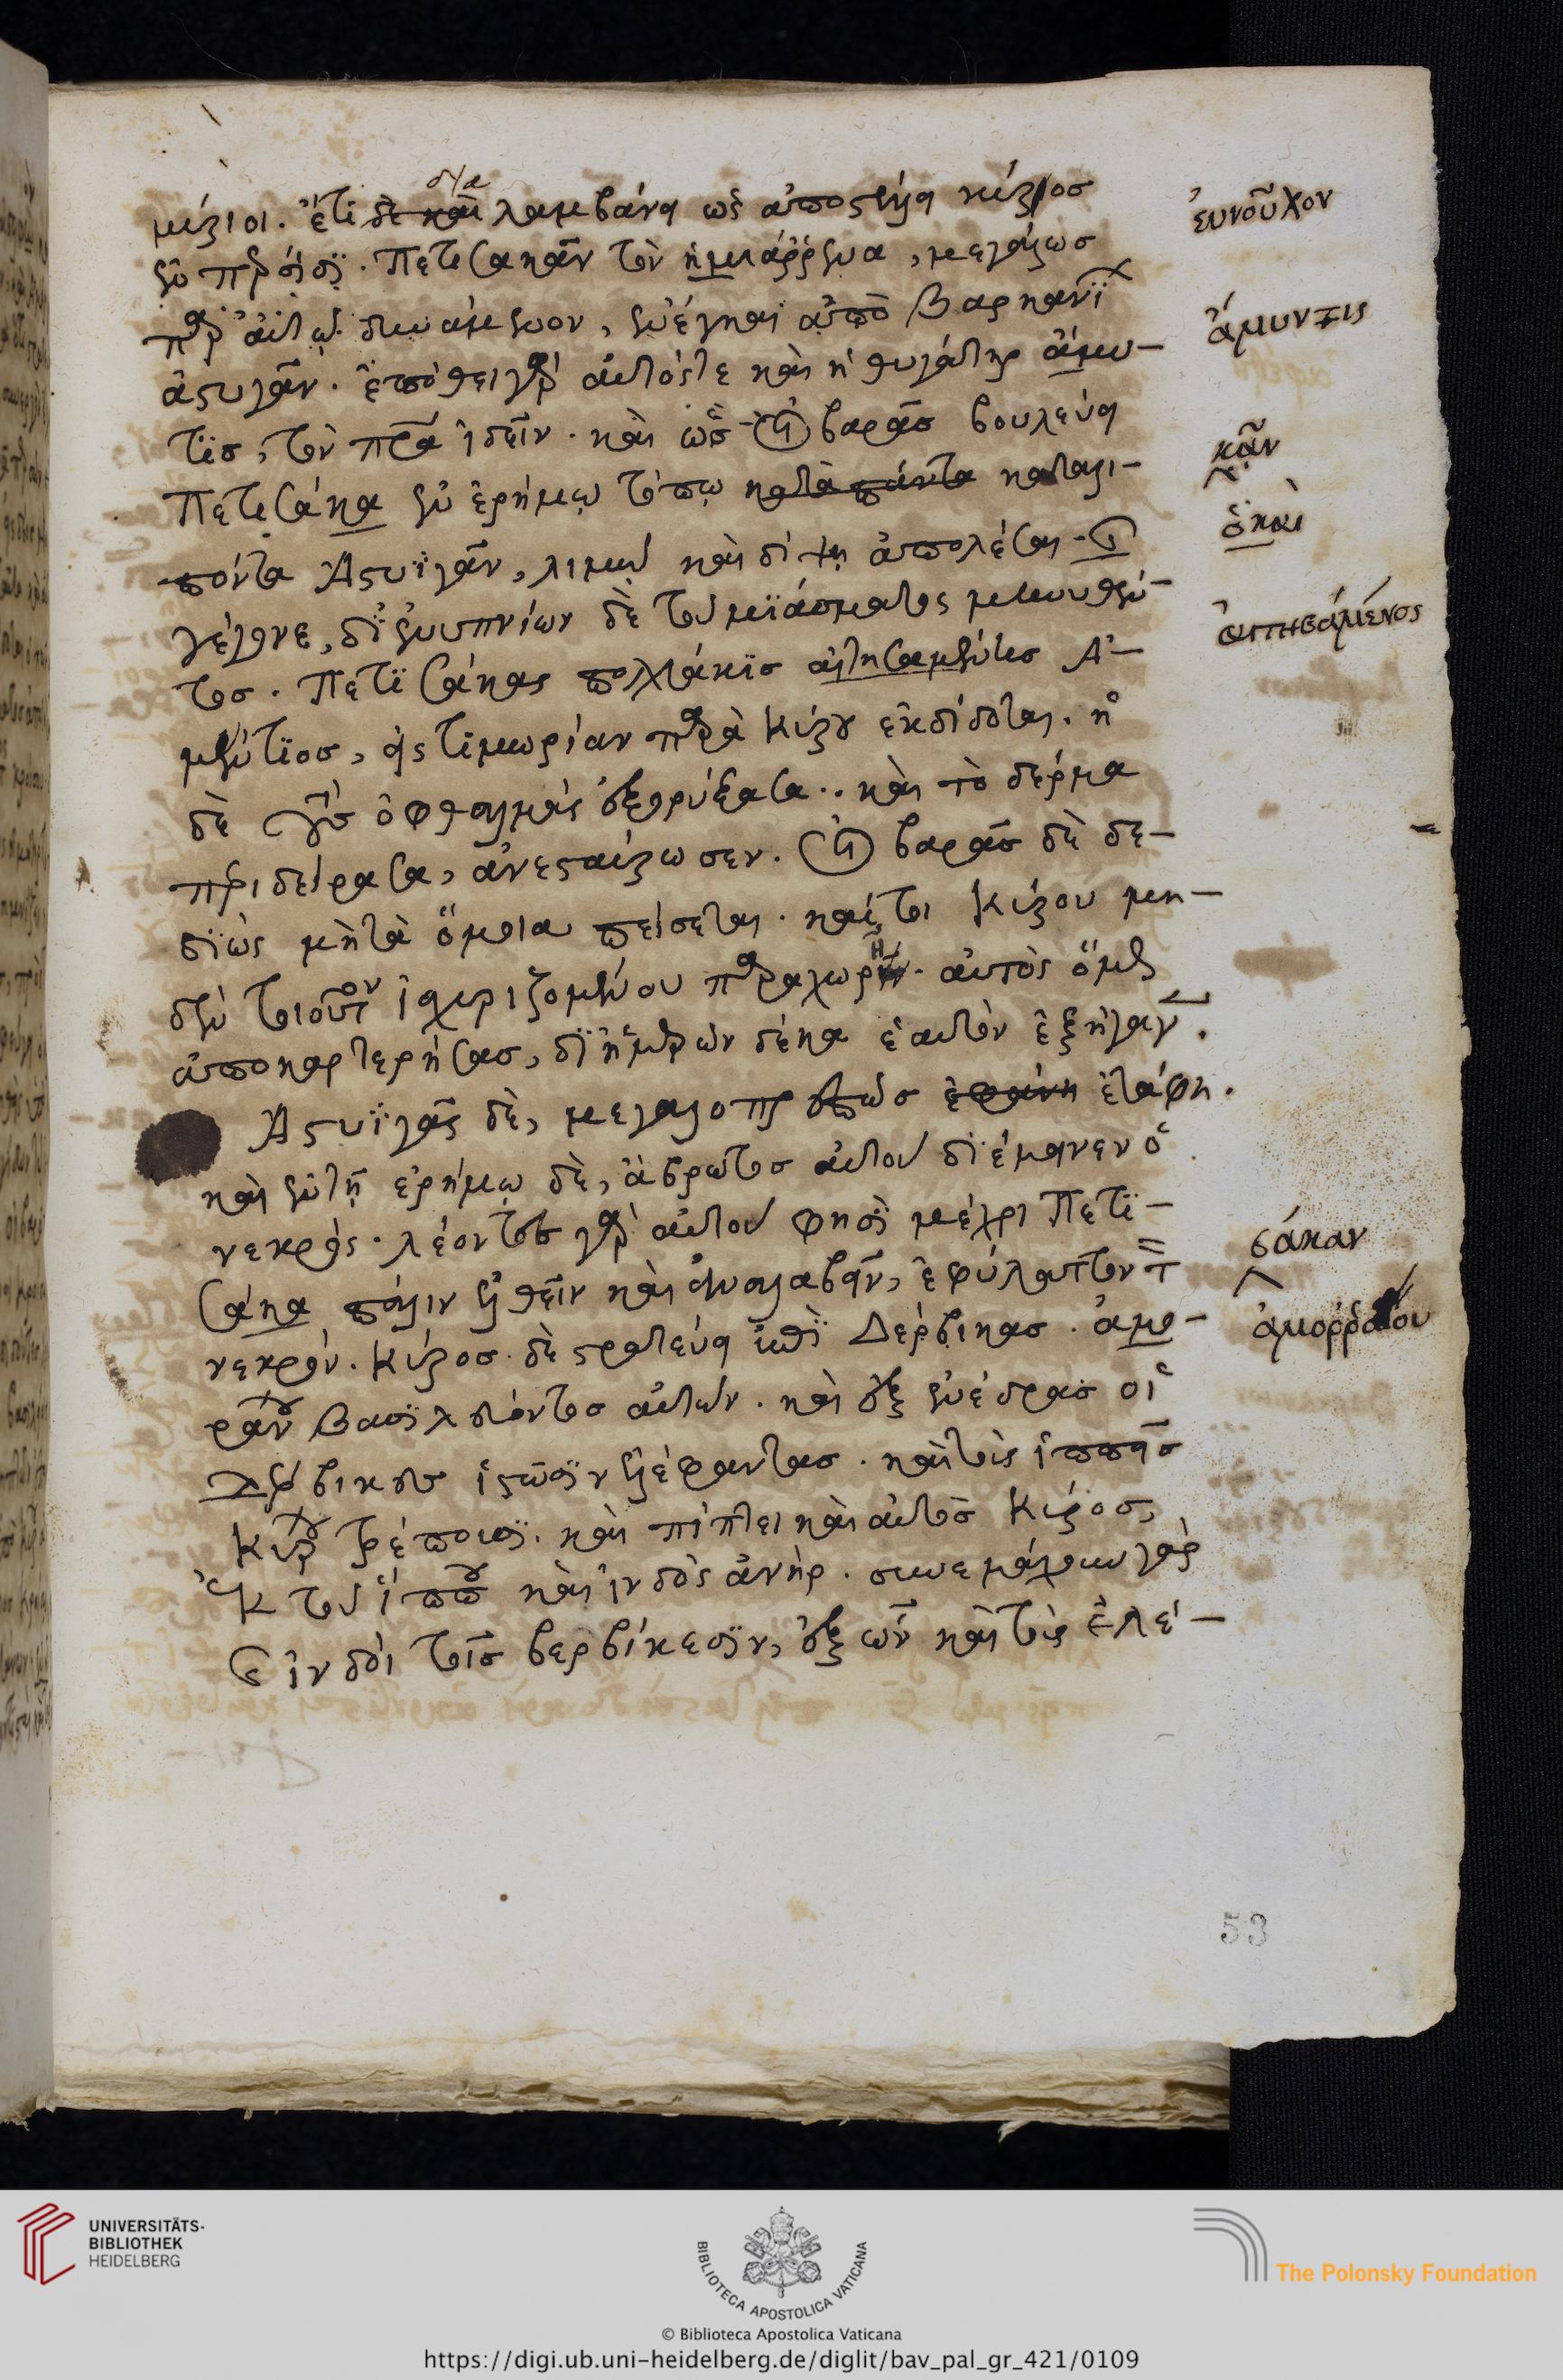 μέριοι. ἔτι δὲ καὶ δια λαμβάνει ὡς ἀποστέλλει κύρος
ἐν πέρσϊσϊ. Πετεσακὰν τὸν ἡμιάρρενα, μεγάλως
παρ αὐτῷ δυνάμενον, ἐνέγκαϊ ἀπὸ βαρκανΐ
ἀστυγὰν. ἐπόθει γὰρ αὐτόστε καὶ ἡ θυγάτηρ ἀμυ-
τϊσ, τὸν πρα ἰδεῖν. καὶ ὡς Οἱ βαρᾶσ βουλεύει
Πετεσάκα ἐν ἐρήμω τόπω κατὰ πάντα καταλι-
πόντα Ἀστυϊγὰν, λιμῷ καὶ δίψη ἀπολέσαι. ὃ
γέγονε, δι ἐνυπνίων δὲ τοῦ μϊάσματος μηνυθέν-
τοσ. Πετϊσάκας πολλάκϊσ αἰτησαμένησ Ἀ-
μύτϊοσ, εἰς τϊμωρίαν παρὰ κύρου ἐκδίδοται. ἡ
δὲ τοὺσ ὀφθαλμοὺς ἐξορύξασα.. καὶ τὸ δέρμα
περιδείρασα, ἀνεσταύρωσεν. Οἱ βαρᾶσ δὲ δε-
δϊὼς μὴ τὰ ὅμοια πείσεται. καίτοι κύρου μη-
δὲν τοιοῦτον ἰσχυριζομένου παραχωρῆσαι. αὐτὸς ὅμως
ἀποκαρτερήσασ, δϊ ἡμερῶν δέκα ἑαυτὸν ἐξήγαγεν.
Ἀστυϊγὰς δὲ, μεγαλοπρεπῶσ ἐφάνη ἐτάφη.
καὶ ἐν τῇ ἐρήμω δὲ, ἄβρωτοσ αὐτοῦ δϊέμεινεν ὁ
νεκρός. λέοντεσ γὰρ αὐτοῦ φησϊ μέχρι Πετϊ-
σάκα πάλιν ἐλθεῖν καὶ ἀναλαβεῖν, ἐφύλαττον τ
νεκρόν. κύροσ δὲ στρατεύει ἐπϊ Δέρβικασ. ἀμο-
ραίου βασϊλεύοντοσ αὐτῶν. καὶ ἐξ ἐνέδρασ οἱ
Δέρβικεσ ἱστῶσϊν ἐλέφαντασ. καὶ τοὺς ἱππεῖσ
κύρου τρέπουσϊ. καὶ πίπτει καὶ αὐτὸσ κύροσ,
ἐκ τοῦ ἵππου καὶ ἰνδὸς ἀνὴρ. συνεμάχουν γὰρ
οἱ ἰνδοὶ τοῖσ βερβίκεσϊν, ἐξ ὧν καὶ τοὺς ἐλέ-
ἐυνοῦχον
ἄμυντις
κᾶν
ὃ καὶ
αἰτησάμενος
σάκαν
ἀμορραίου
53
UNIVERSITÄTS-
BIBLIOTHEK
HEIDELBERG
BIBLIOTECA APOSTOLICA VATICANA
The Polonsky Foundation
© Biblioteca Apostolica Vaticana
https://digi.ub.uni-heidelberg.de/diglit/bav_pal_gr_421/0109